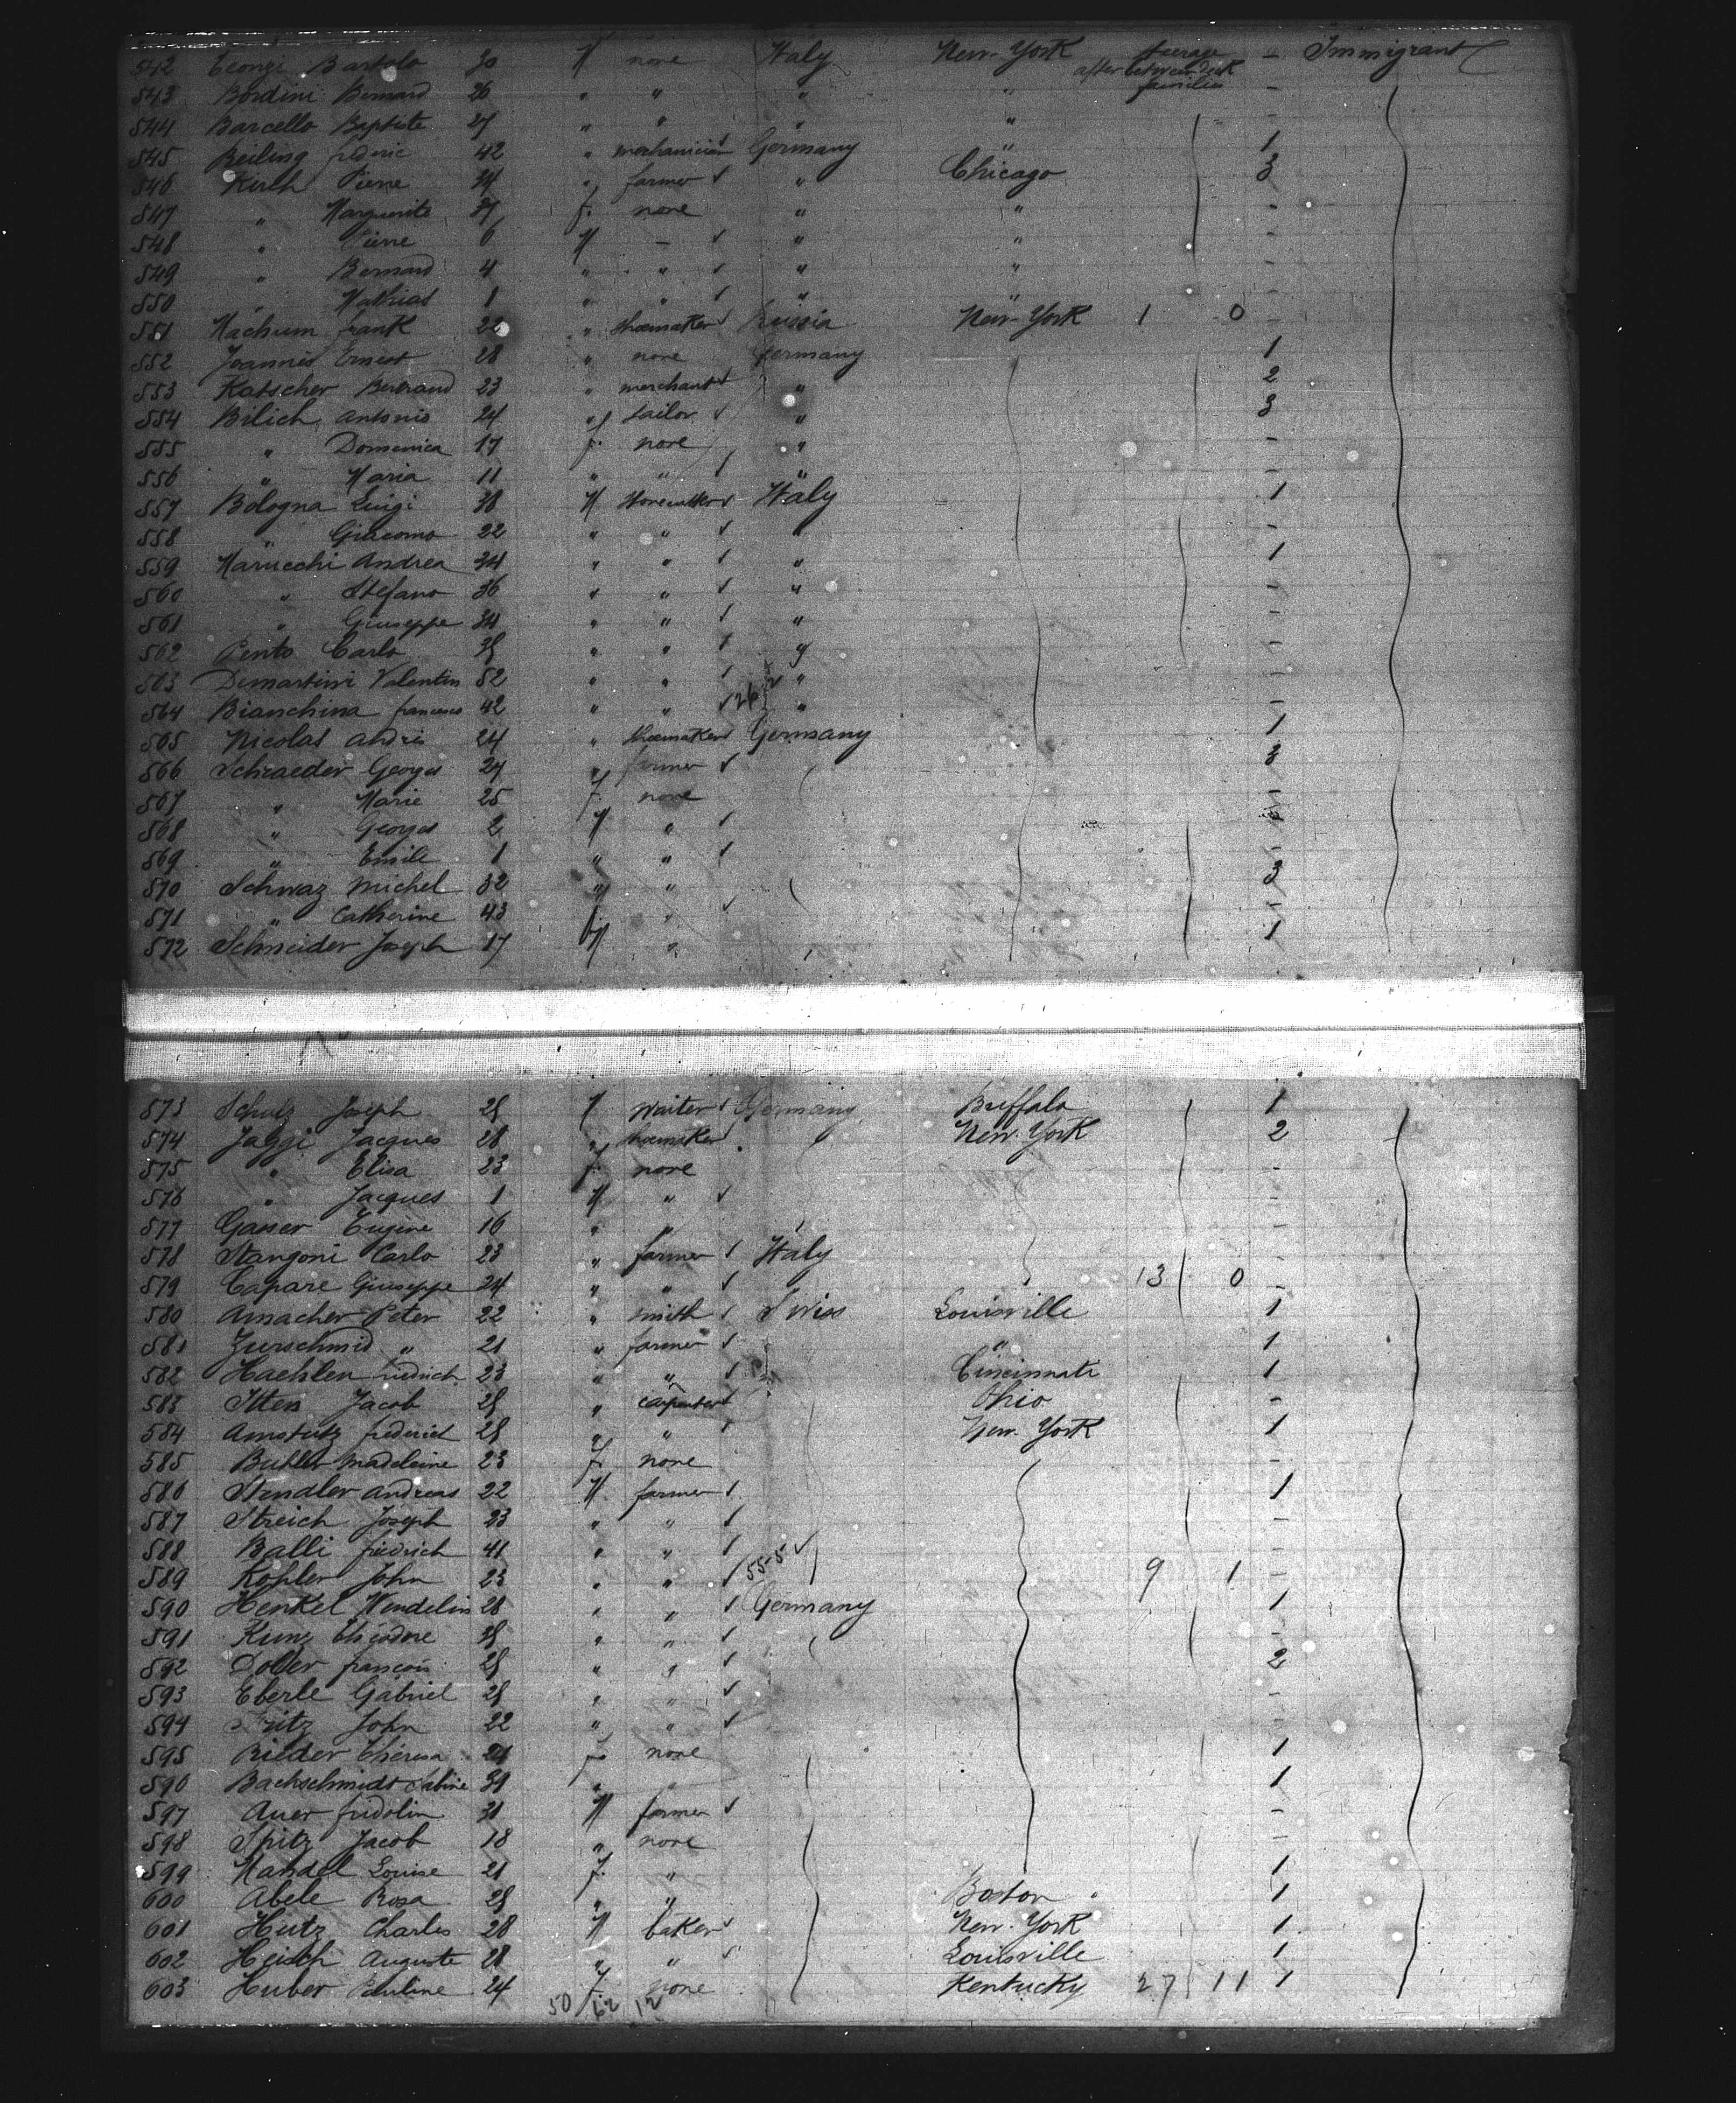 542 Georgi Bartolo 30 M none Italy New-York Steerage - Immigrant
after between deck
families
543 Bordini Bernard 26 " " " " -
544 Barcello Baptiste 27 " " " " -
545 Beiling frederic 42 " mechanician Germany " 1
546 Kirch Pierre 34 " farmer " Chicago 3
547 " Marguerite 37 f. none " " -
548 " Pierre 6 M - " " -
549 " Bernard 4 " " " " -
550 " Mathias 1 " " " " -
551 Machum frank 22 " shoemaker Russia New-York 1 0 -
552 Joannes Ernest 28 " none Germany 1
553 Katscher Bertrand 23 " merchant " 2
554 Bilich Antonio 24 " tailor " 3
555 " Domenica 17 f. none " -
556 " Maria 11 " " " -
557 Bologna Luigi 38 M Italy 1
558 " Giacomo 22 " " " -
559 Marucchi Andrea 34 " " " 1
560 " Stefano 36 " " " -
561 " Giuseppe 34 " " " -
562 Pento Carlo " " " -
563 Demartini Valentin 52 " " " -
564 Bianchina francesco 42 " " 26 2 " -
565 Nicolas André 24 " shoemaker Germany 1
566 Schraeder Georges 27 " farmer 3
567 " Marie 25 f. none -
568 " Georges 2 M "
569 " Emile 1 " " -
570 Schwaz Michel 32 " " 3
571 " Catherine 43 f. " -
572 Schneider Joseph 17 M " 1
573 Schulz Joseph 25 M waiter Germany Buffalo 1
574 Jaggi Jacques 28 " shoemaker New-York 2
575 " Elisa 23 f. none -
576 " Jacques 1 M " -
577 Gasser Eugène 16 " " -
578 Stangoni Carlo 23 " farmer Italy -
579 Capare Giuseppe 24 " " 13 0 -
580 Amacher Peter 22 " smith Swiss Louisville 1
581 Zurschmid " 21 " farmer " 1
582 Haehlen friedrich 23 " " Cincinnati 1
583 Itten Jacob 25 " carpenter Ohio -
584 Amstutz frederich 25 " " New-York 1
585 Buhler Madeleine 23 f. none -
586 Stendler Andreas 22 M. farmer 1
587 Streich Joseph 23 " " -
588 Balli friedrich 41 " " -
589 Kohler John 23 " " 55-5 9 1 -
590 Henkel Wendelin 28 " " Germany 1
591 Kunz Théodore " " -
592 Doller françois 25 " " 2
593 Eberle Gabriel 25 " " -
594 Fritz John 22 " " -
595 Rieder Théresa 24 f. none 1
590 Bachschmidt Sabine 39 " " 1
597 Auer fridolin 31 M farmer -
598 Spitz Jacob 18 " none -
599 Mandel Louise 21 f. " 1
600 Abele Rosa 25 " " Boston 1
601 Hutz Charles 28 M baker New-York 1
602 Heisch Auguste 28 " " Louisville 1
603 Huber Pauline 24 f. none Kentucky 27 11 1
50 62 12